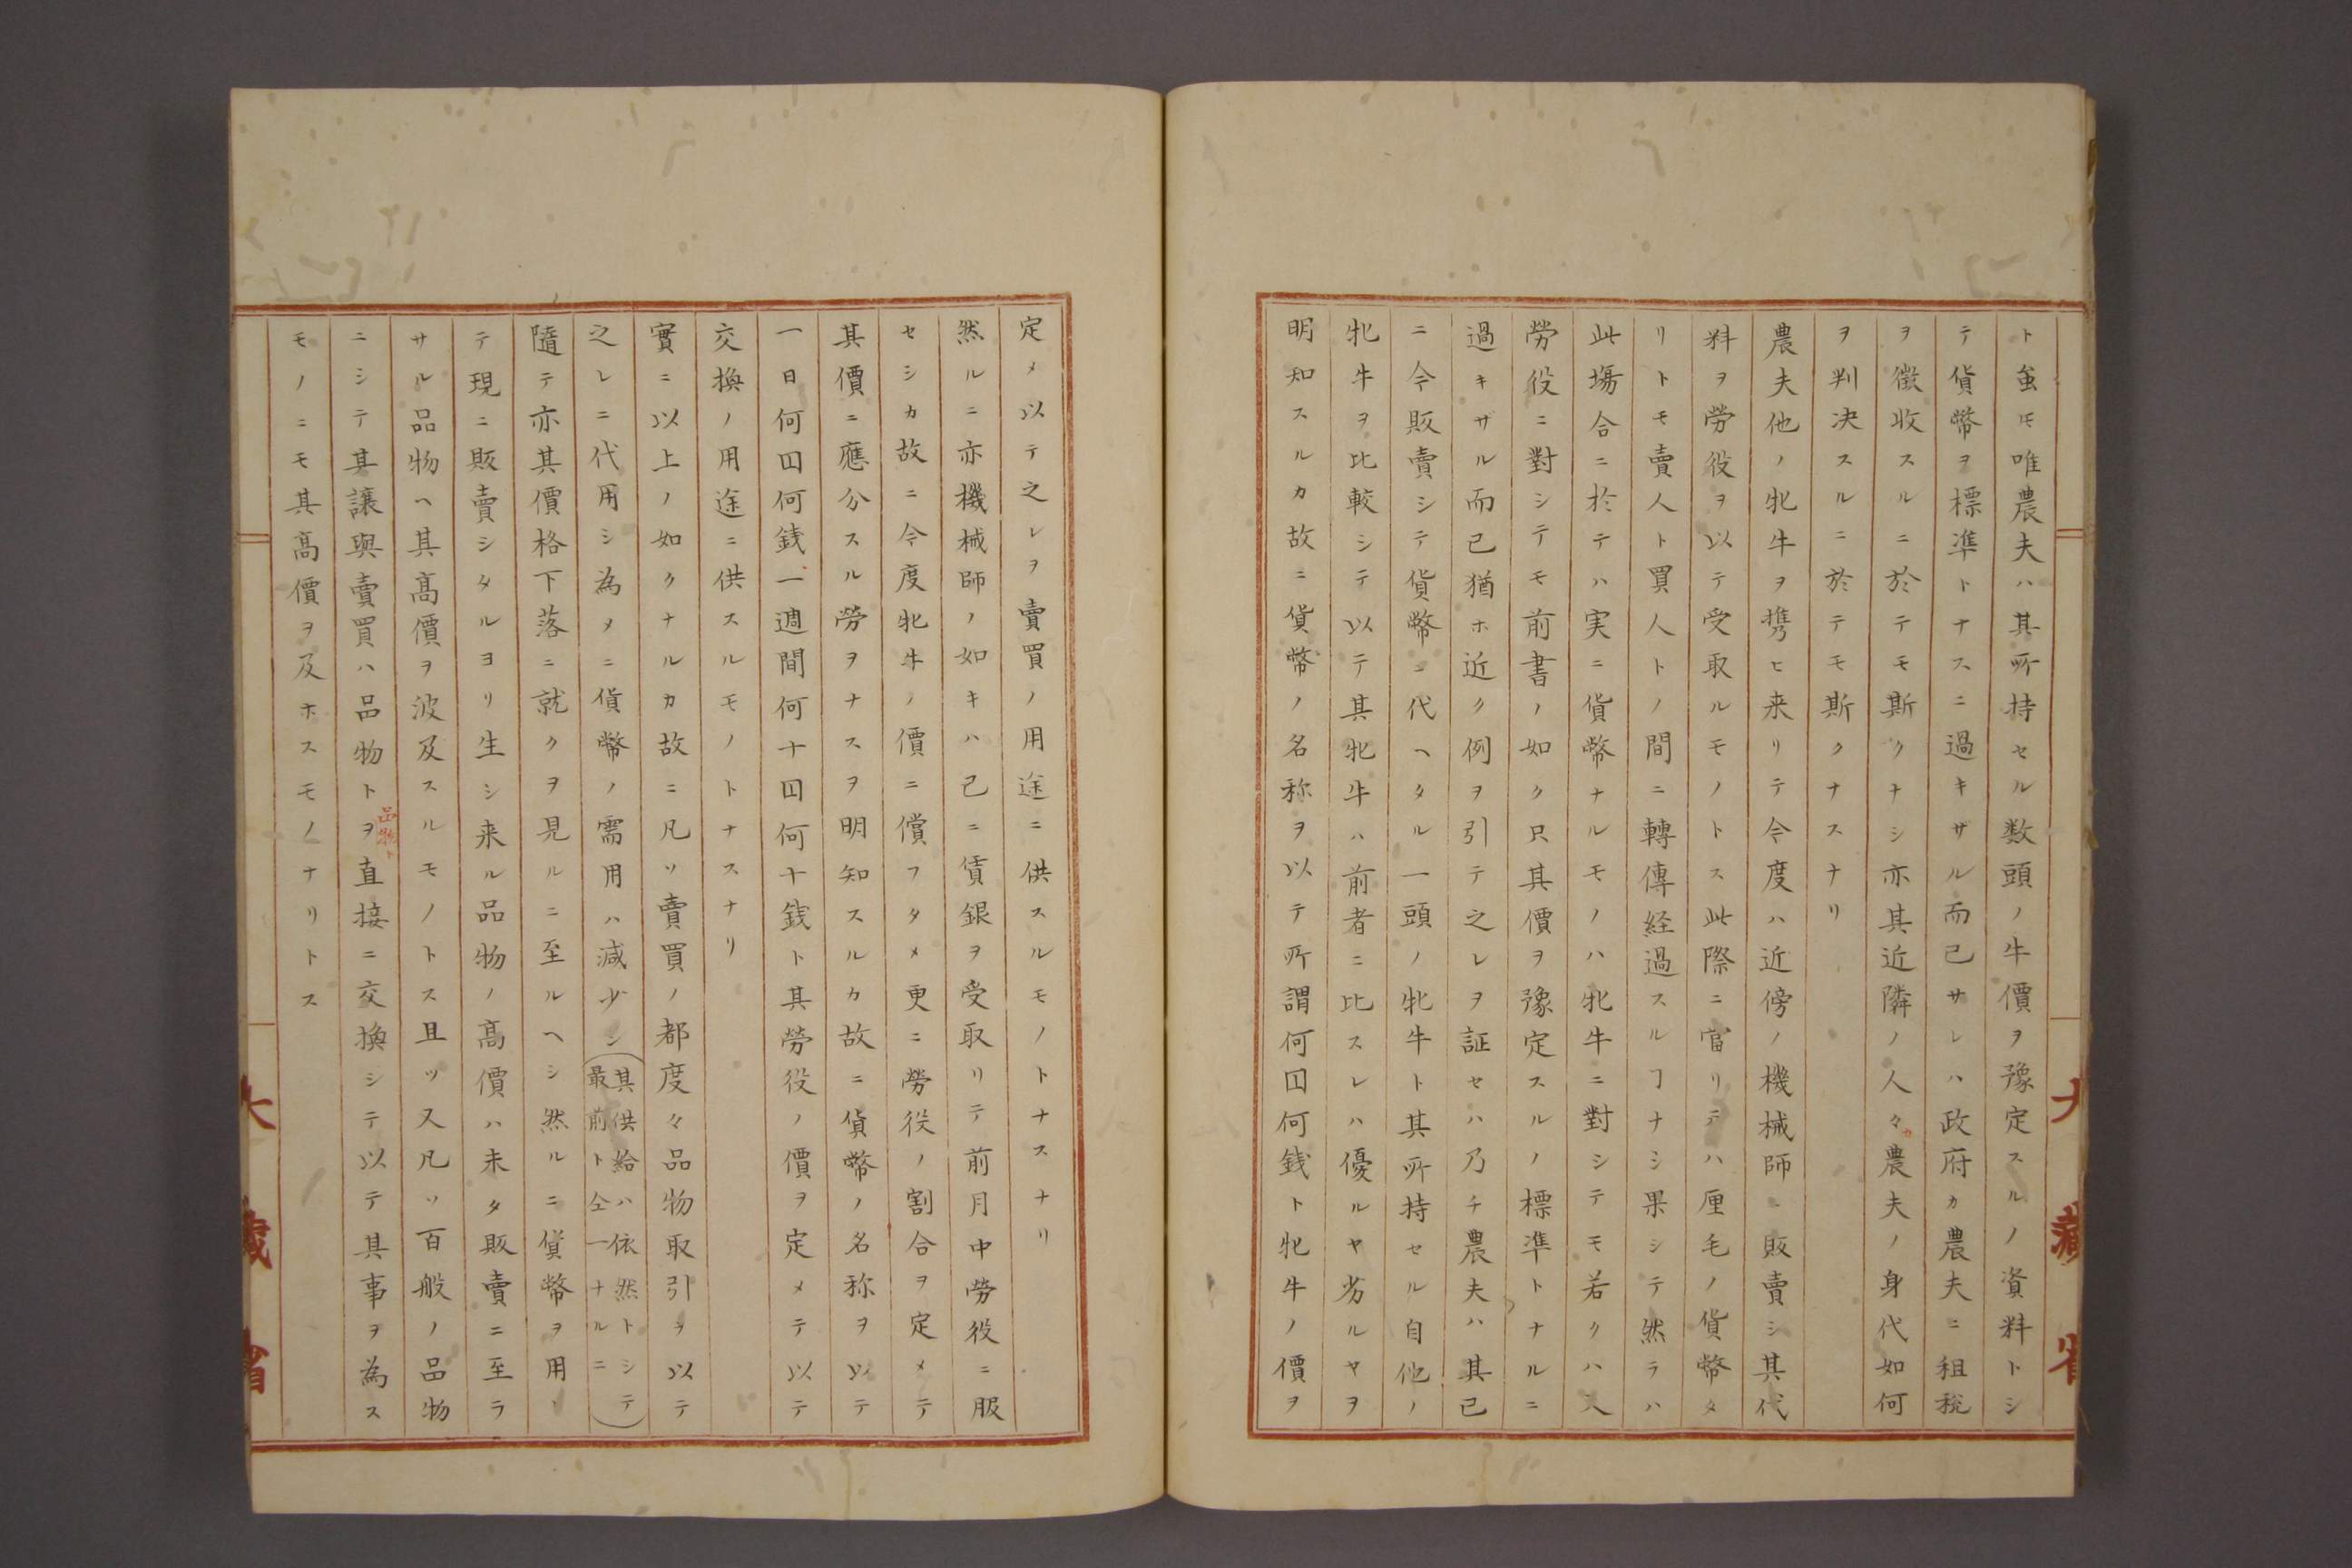 ト雖モ唯農夫ハ其所持セル数頭ノ牛價ヲ豫定スルノ資料トシ
テ貨幣ヲ標準トナスニ過キザル而已サレハ政府カ農夫ニ租税
ヲ徴收スルニ於テモ斯クナシ亦其近隣ノ人々カ農夫ノ身代如何
ヲ判決スルニ於テモ斯クナスナリ
農夫他ノ牝牛ヲ携ヒ来リテ今度ハ近傍ノ機械師ニ販賣シ其代
料ヲ勞役ヲ以テ受取ルモノトス此際ニ當リテハ厘毛ノ貨幣タ
リトモ賣人ト買人トノ間ニ轉傳経過スルヿナシ果シテ然ラハ
此場合ニ於テハ実ニ貨幣ナルモノハ牝牛ニ對シテモ若クハ又
勞役ニ對シテモ前書ノ如ク只其價ヲ豫定スルノ標準トナルニ
過キザル而已猶ホ近ク例ヲ引テ之レヲ証セハ乃チ農夫ハ其已
ニ今販賣シテ貨幣ニ代ヘタル一頭ノ牝牛ト其所持セル自他ノ
牝牛ヲ比較シテ以テ其牝牛ハ前者ニ比スレハ優ルヤ劣ルヤヲ
明知スルカ故ニ貨幣ノ名称ヲ以テ所謂何囗何銭ト牝牛ノ價ヲ
定メ以テ之レヲ賣買ノ用途ニ供スルモノトナスナリ
然ルニ亦機械師ノ如キハ已ニ賃銀ヲ受取リテ前月中勞役ニ服
セシカ故ニ今度牝牛ノ價ニ償フタメ更ニ勞役ノ割合ヲ定メテ
其價ニ應分スル勞ヲナスヲ明知スルカ故ニ貨幣ノ名称ヲ以テ
一日何囗何銭一週間何十囗何十銭ト其勞役ノ價ヲ定メテ以テ
交換ノ用途ニ供スルモノトナスナリ
實ニ以上ノ如クナルカ故ニ凡ソ賣買ノ都度々品物取引ヲ以テ
之レニ代用シ為メニ貨幣ノ需用ハ減少シ(其供給ハ依然トシテ
最前ト仝一ナルニ)
隨テ亦其價格下落ニ就クヲ見ルニ至ルヘシ然ルニ貨幣ヲ用ヽ
テ現ニ販賣シタルヨリ生シ来ル品物ノ高價ハ未タ販賣ニ至ラ
サル品物ヘ其高價ヲ波及スルモノトス且ツ又凡ソ百般ノ品物
ニシテ其譲與賣買ハ品物ト品物トヲ直接ニ交換シテ以テ其事ヲ為ス
モノニモ其高價ヲ及ホスモノナリトス
大藏省
大藏省